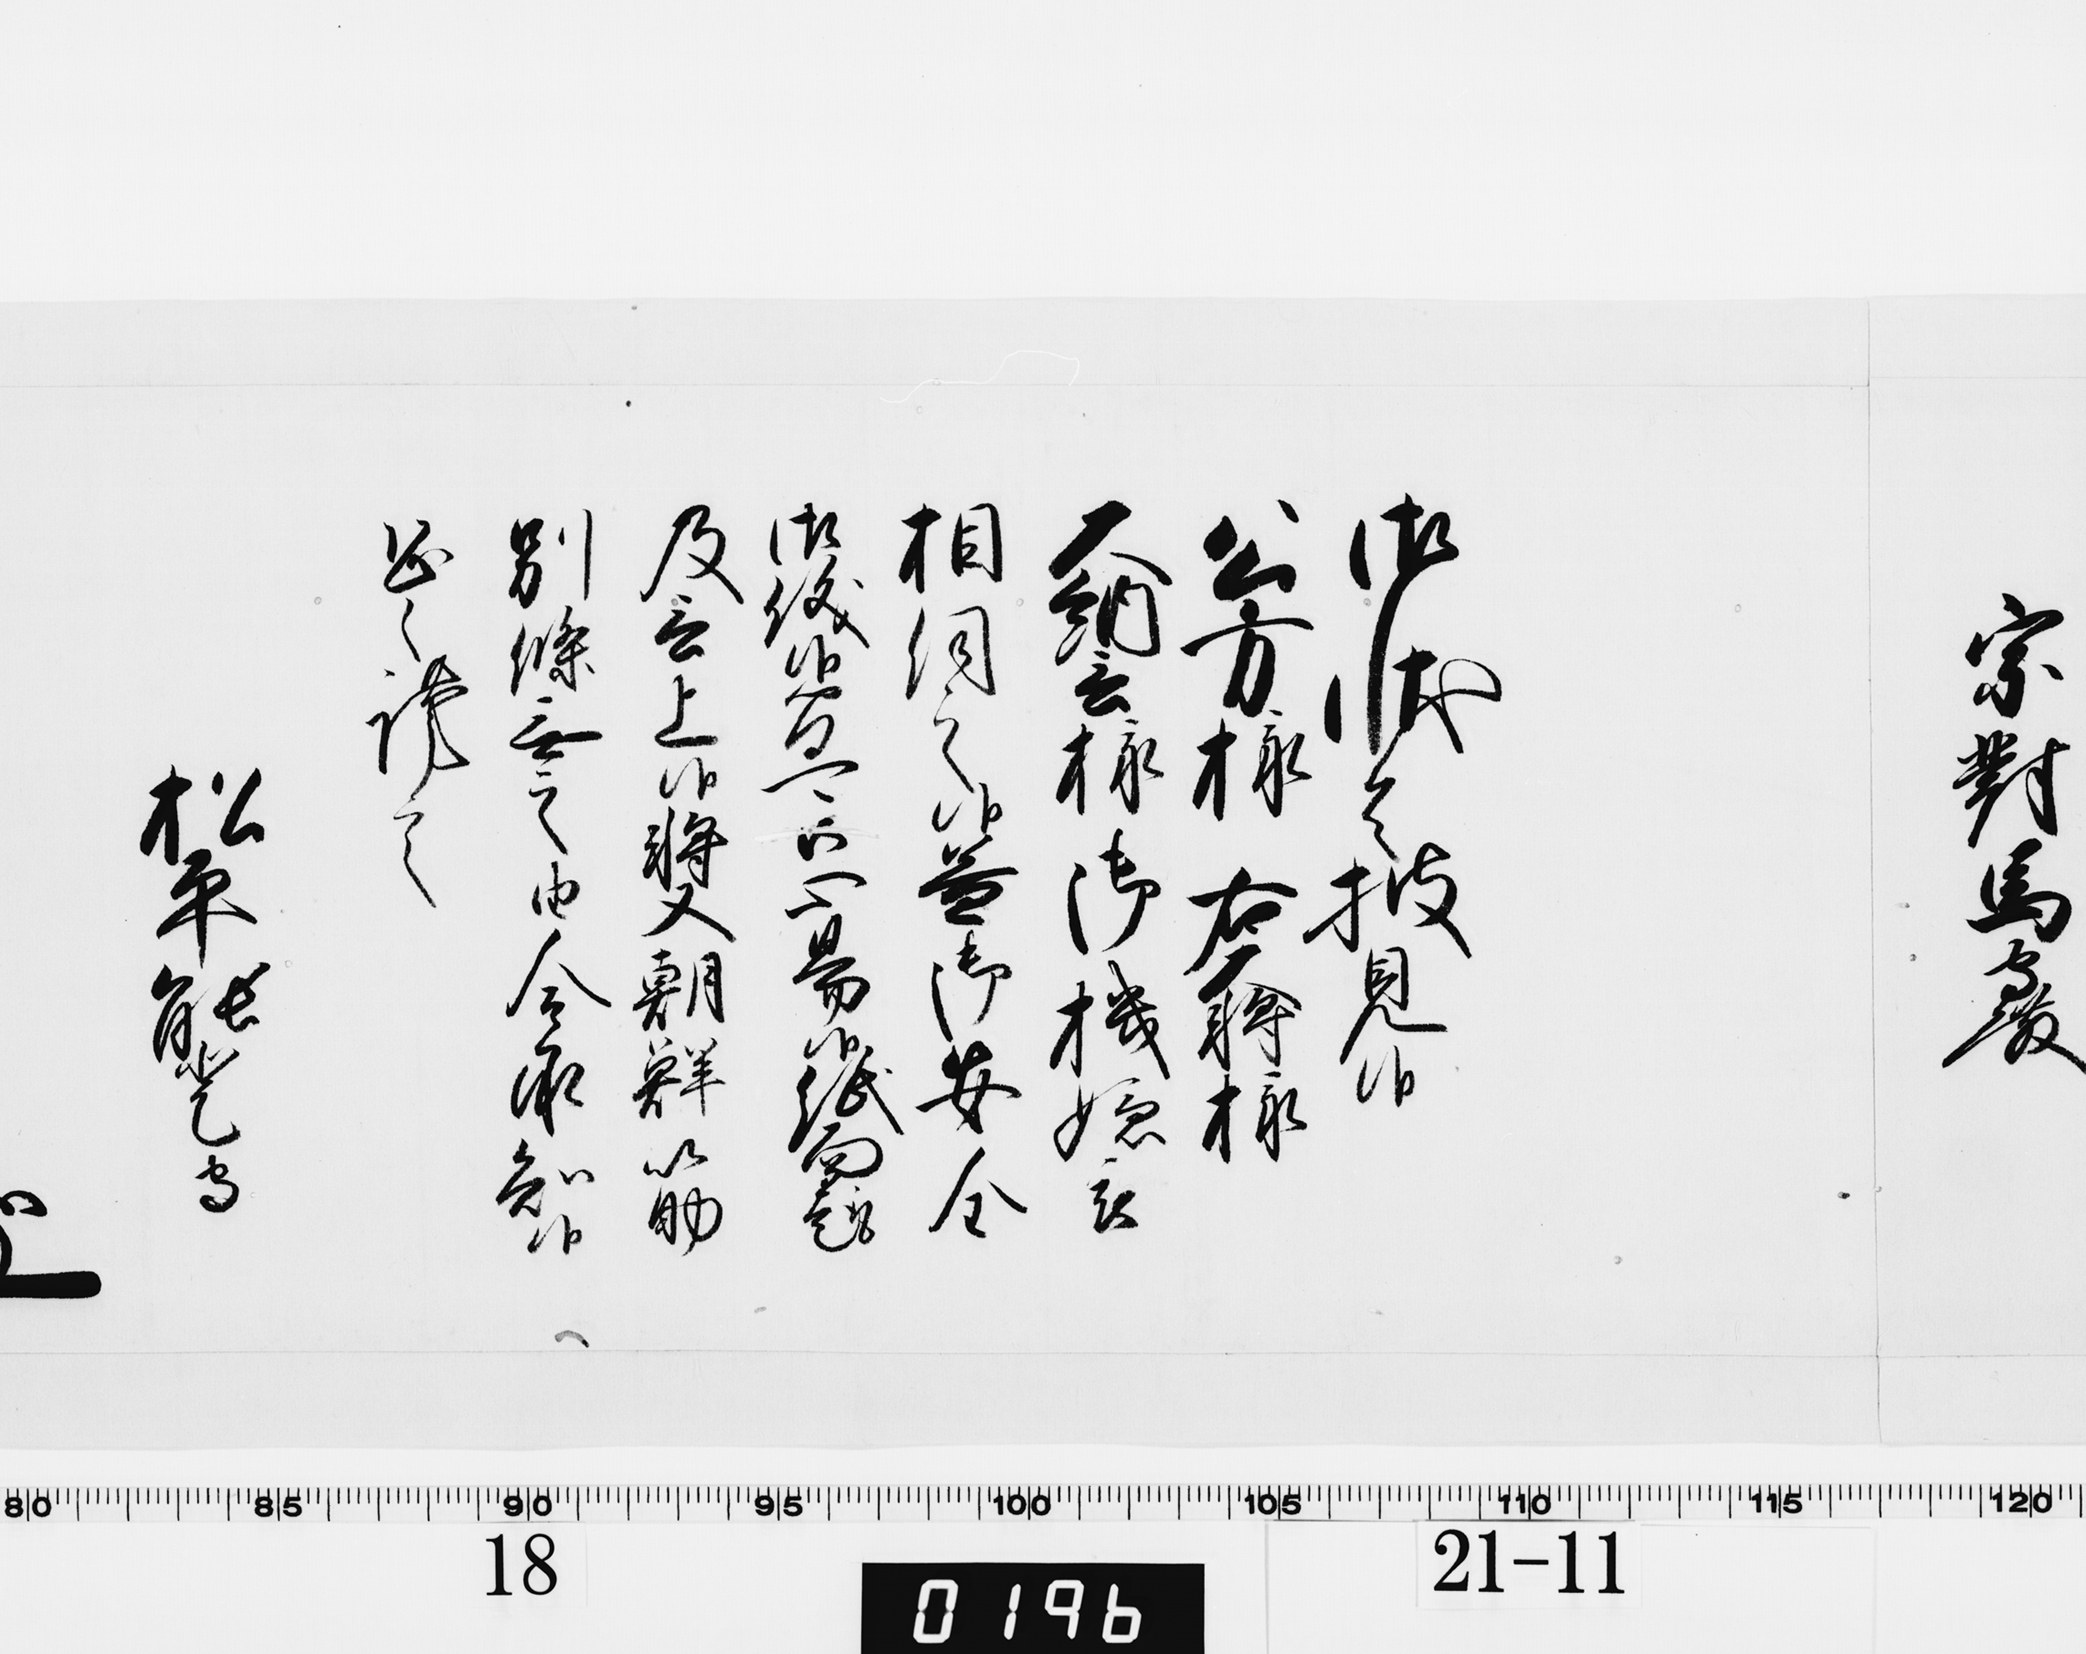 宗對馬守殿
御状令披見候
公方様 右大将様
大納言様御機嫌被
相伺之候益御安全
御儀候間可御心易候紙面趣
及言上候将又朝鮮筋
別條無之由令承知候
恐々謹言
松平能登守
80 85 90 95 100 105 110 115 120
18
21-11
0196